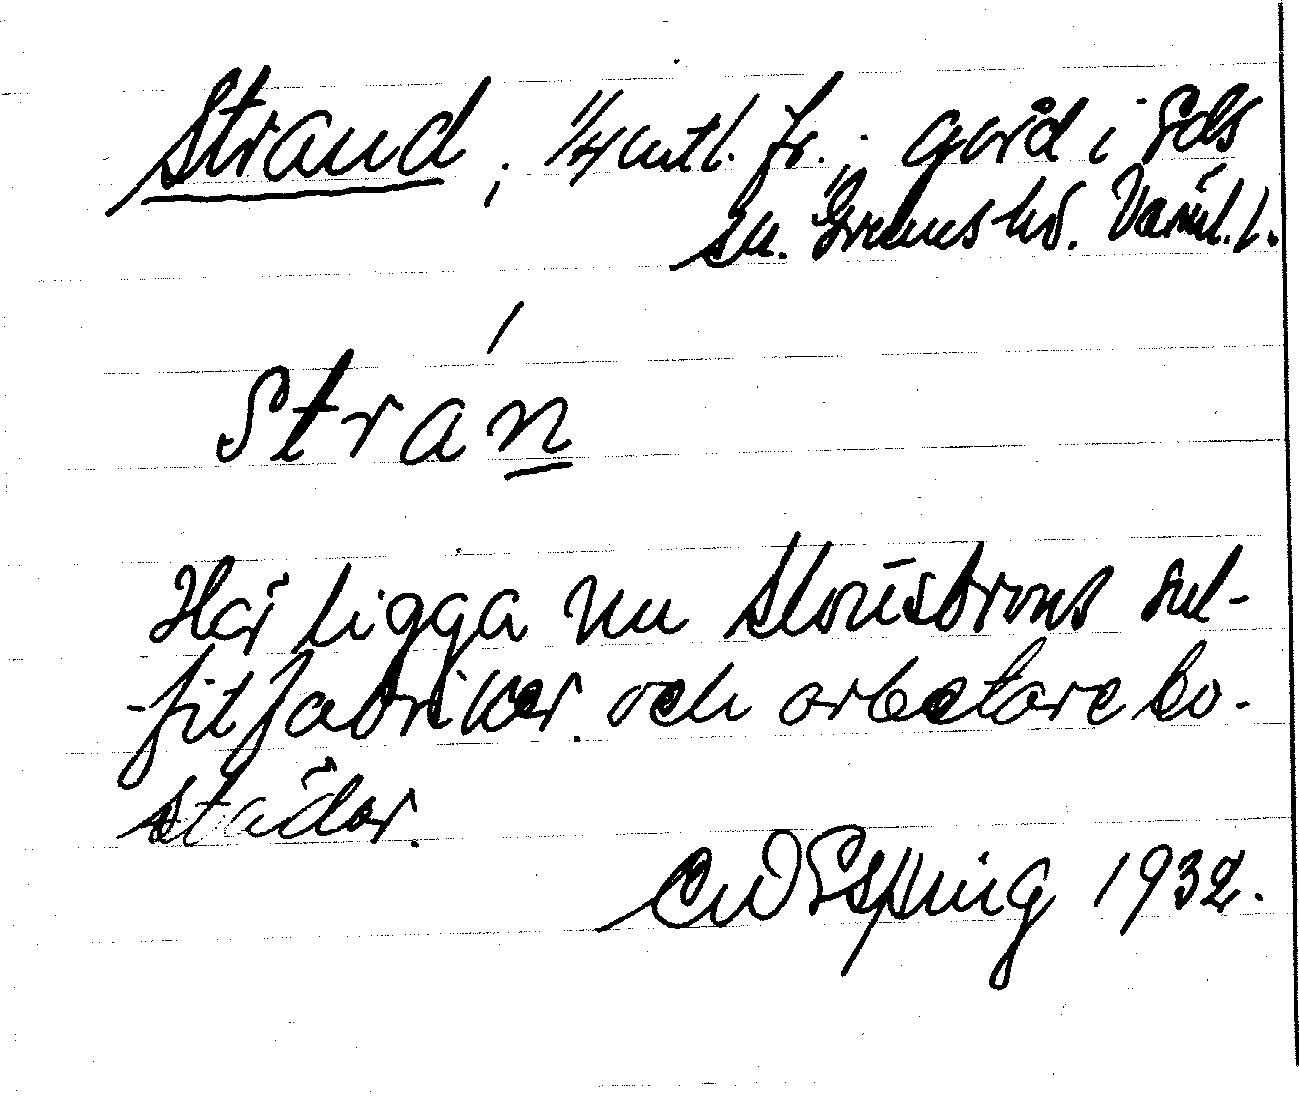 Strand, 1/4 mtl. fr., gård i Eds
sn. Grums hd. Värml. l.
Strán
Här ligga nu Slottsbrons sul-
-fitfabriker och arbetarebo-
städer.
CWEsping 1932.